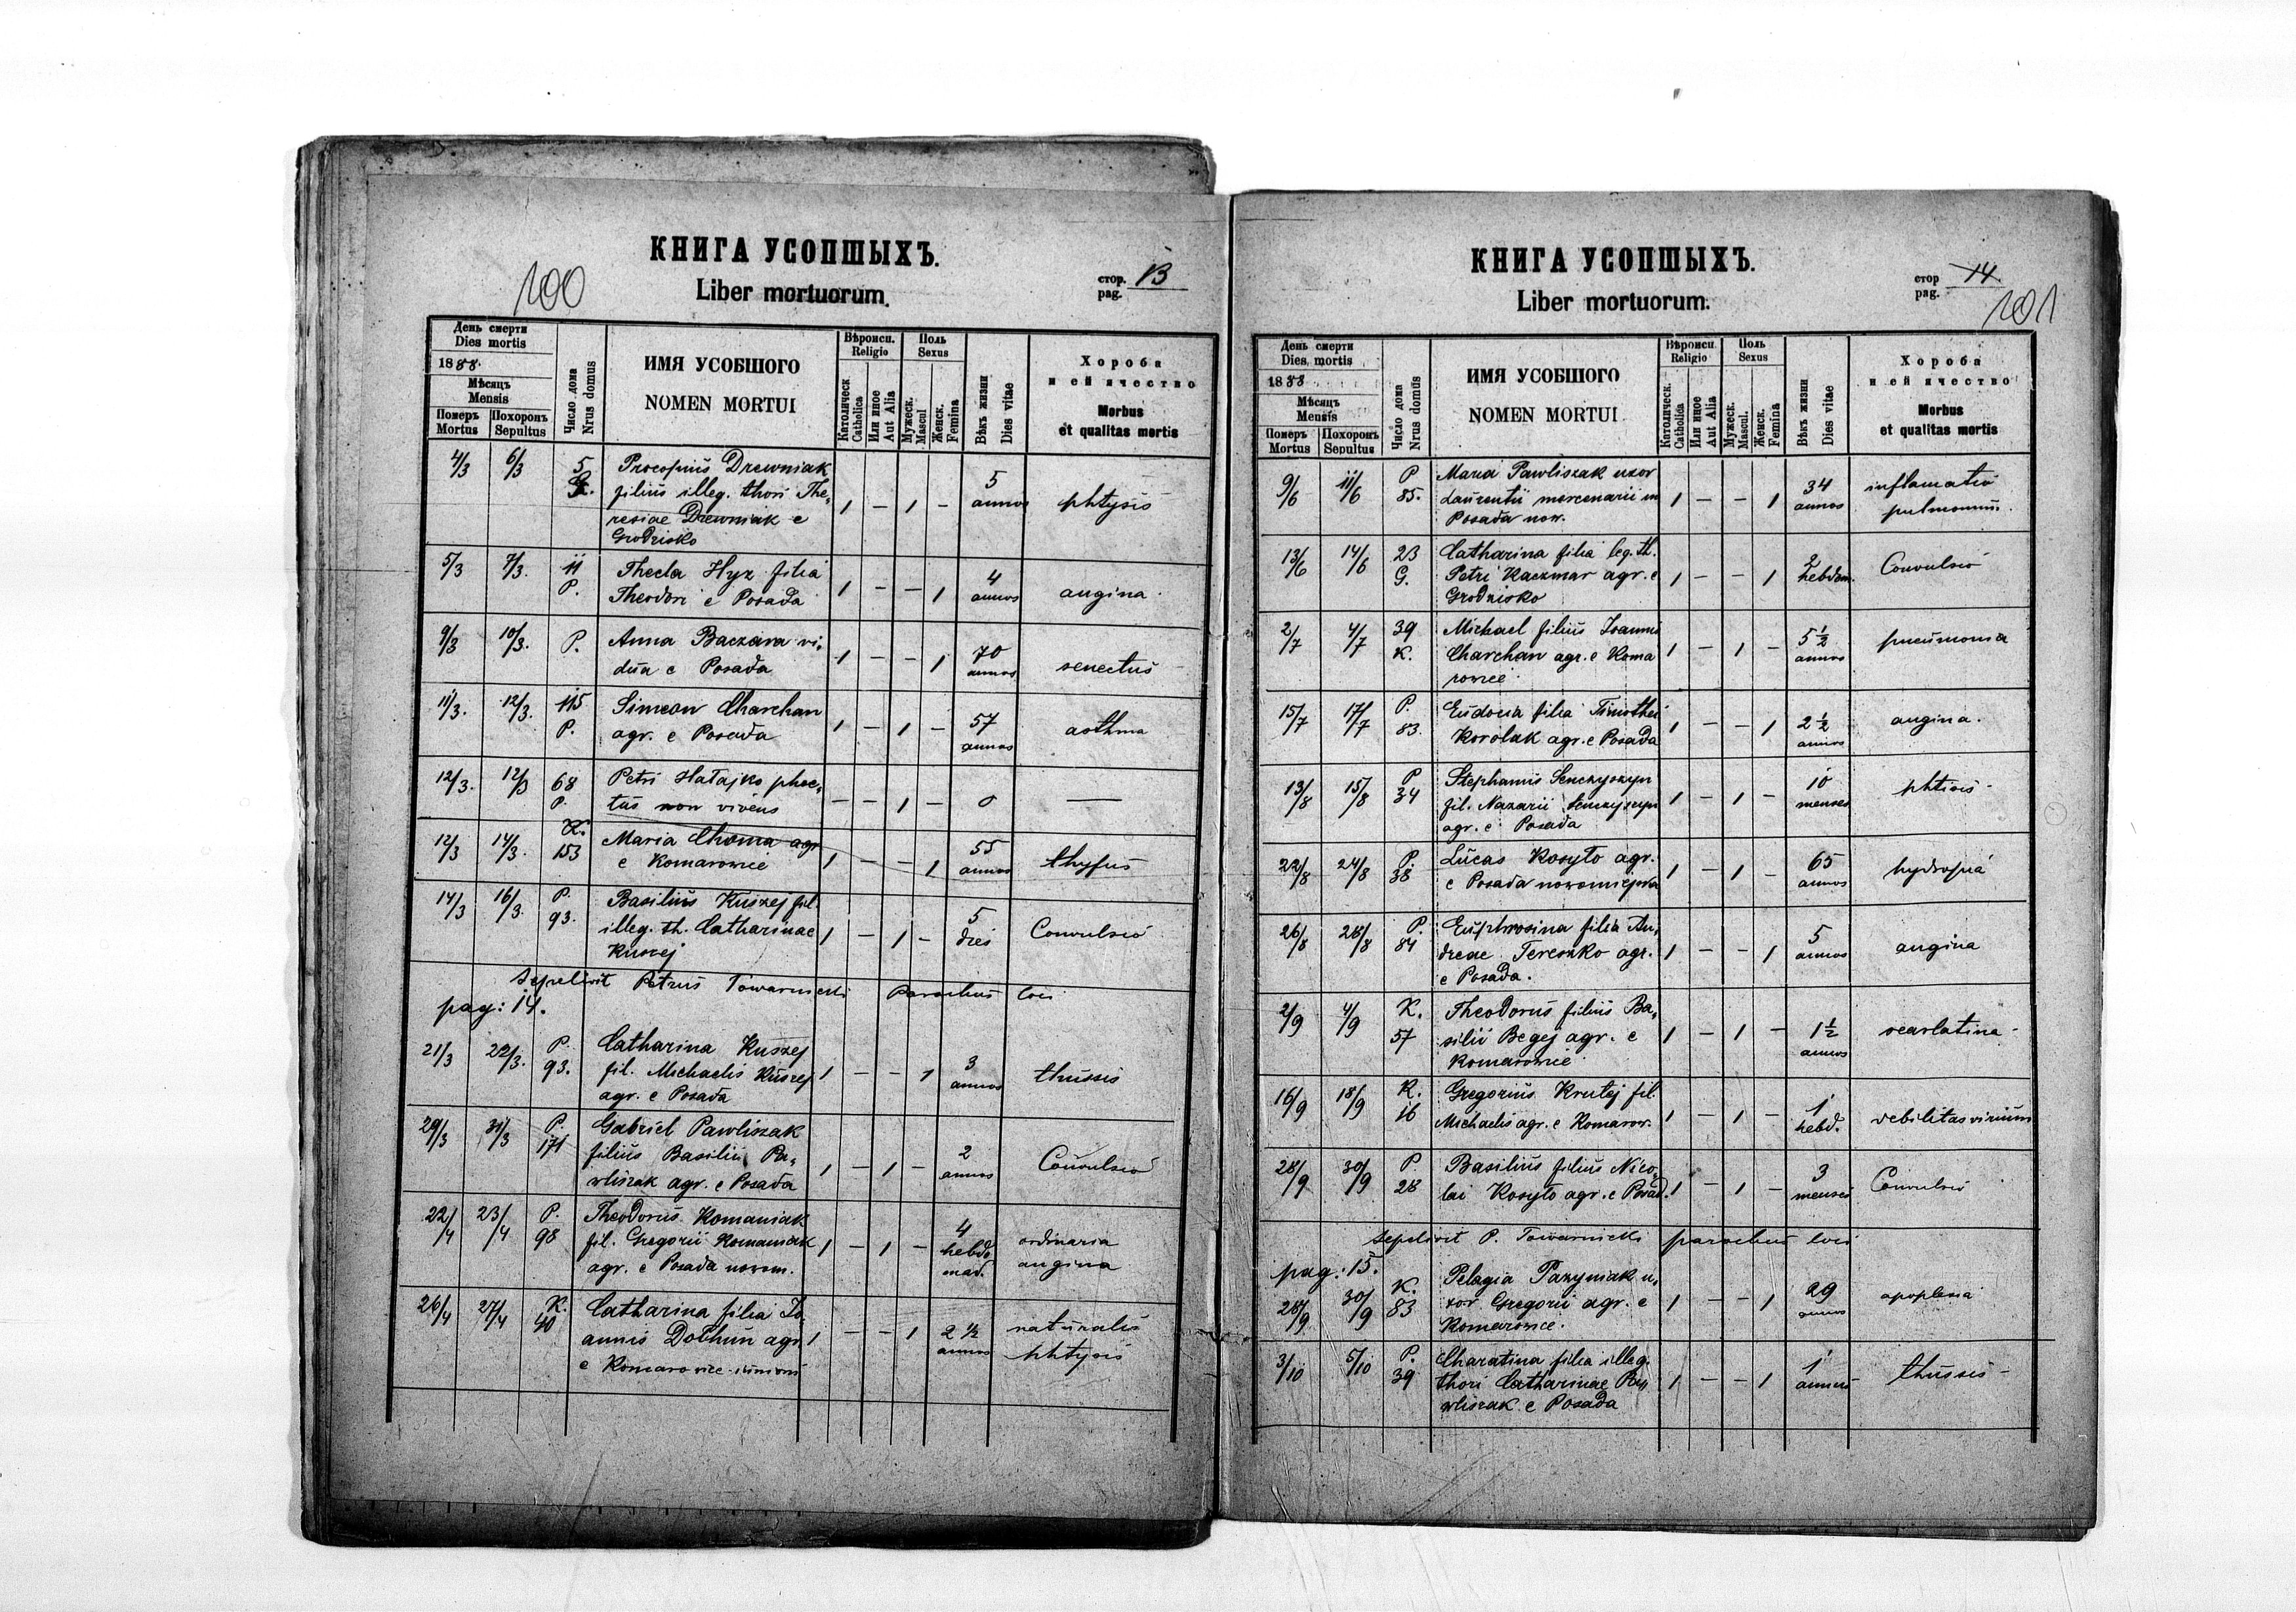 КНИГА УСОПШЫХЪ.
100
Liber mortuorum.
стор. pag. 13
День смерти Dies mortis
1888.
Мѣсяцъ Mensis
Померъ Mortus
Похоронъ Sepultus
Число дома Nrus domus
ИМЯ УСОБШОГО
NOMEN MORTUI
Вѣроисп. Religio
Католическ. Catholica
Или иное Aut Alia
Полъ Sexus
Мужеск. Mascul
Женск. Femina
Вѣкъ жизни Dies vitae
Хороба и ей ячество
Morbus et qualitas mortis
4/3 6/3 5 G. Procopius Drewniak
filius illeg. thori The-
resiae Drewniak e
Grodzisko
1 – 1 – 5 annos phtysis
5/3 7/3. 11 P. Thecla Hyz filia
Theodori e Posada
1 – – 1 4 annos angina
9/3 10/3. P. Anna Baczara vi-
dua e Posada
1 – – 1 70 annos senectus
11/3. 12/3. 115 P. Simeon Charchan
agr. e Posada
1 – 1 – 57 annos asthma
12/3. 12/3 68 P. Petri Hałajko phoe-
tus non vivens
– – 1 – 0 —
12/3 14/3. K. 153 Maria Choma agr
e Komarowice
1 – – 1 55 annos thyfus
14/3 16/3. P. 93. Basilius Kuszej fil.
illeg. th. Catharinae
Kuszej
1 – 1 – 5 dies Convulsio
Sepelivit Petrus Towarnicki Parochus loci
pag: 14.
21/3 22/3. P. 93. Catharina Kuszej
fil. Michaelis Kuszej
agr. e Posada
1 – – 1 3 annos thussis
29/3 31/3 P. 171 Gabriel Pawliszak
filius Basilii Pa-
wliszak agr. e Posada
1 – 1 – 2 annos Convulsio
22/4 23/4 P. 98 Theodorus Romaniak
fil. Gregorii Romaniak
agr. e Posada nowom.
1 – 1 – 4 hebdo mad. ordinaria angina
26/4 27/4 K. 40 Catharina filia Jo-
annis Dołhun agr.
e Komarowice
1 – – 1 2 1/2 annos naturalis phtysis
КНИГА УСОПШЫХЪ.
Liber mortuorum.
стор pag. 14.
101
День смерти Dies mortis
1888
Мѣсяцъ Mensis
Померъ Mortus
Похоронъ Sepultus
Число дома Nrus domus
ИМЯ УСОБШОГО
NOMEN MORTUI
Вѣроисп. Religio
Католическ. Catholica
Или иное Aut Alia
Полъ Sexus
Мужеск. Mascul.
Женск. Femina
Вѣкъ жизни Dies vitae
Хороба и ей ячество
Morbus et qualitas mortis
9/6 11/6 P 85. Maria Pawliszak uxor
Laurentii mercenarii in
Posada now.
1 – – 1 34 annos inflamatio pulmonum.
13/6 14/6 23 G. Catharina filia leg. th.
Petri Kaczmar agr. e
Grodzisko
1 – – 1 2 hebdom. Convulsio
2/7 4/7 39 K. Michael filius Joannis
Charchan agr. e Koma
rowice
1 – 1 – 5 1/2 annos pneumonia
15/7 17/7 P. 83. Eudocia filia Timothei
Korolak agr. e Posada
1 – – 1 2 1/2 annos angina.
13/8 15/8 P 34 Stephanus Senczyszyn
fil. Nazarii Senczyszyn
agr. e Posada
1 – 1 – 10 menses phtisis
22/8 24/8 P. 38 Lucas Kosyto agr.
e Posada nowomiejska
1 – 1 – 65 annos hydropia
26/8 28/8 P. 84 Euphrosina filia An-
dreae Tereszko agr.
e Posada.
1 – – 1 5 annos angina
2/9 4/9 K. 57 Theodorus filius Ba-
silii Begej agr. e
Komarowice
1 – 1 – 1 1/2 annos scarlatina
16/9 18/9 K. 16 Gregorius Krutej fil.
Michaelis agr. e Komarow.
1 – 1 – 1 hebd. debilitas virium
28/9 30/9 P. 28 Basilius filius Nico-
lai Kosyto agr. e Posad.
1 – 1 – 3 menses Convulsio
Sepelivit P. Towarnicki parochus loci
pag: 15.
28/9 30/9 K. 83 Pelagia Pazyniak u-
xor Gregorii agr. e
Komarowice.
1 – – 1 29 annos apoplexia
3/10 5/10 P. 39 Charatina filia illeg.
thori Catharinae Pa-
wliszak e Posada
1 – – 1 1 annum thussis